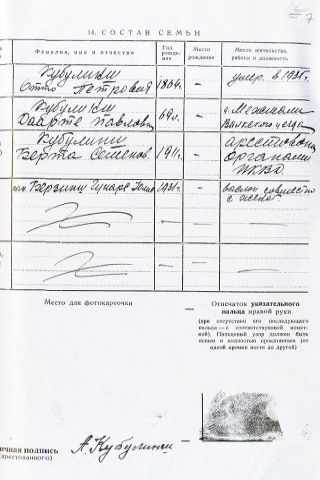 7
14. СОСТАВ СЕМЬИ
Фамилия, имя и отчество
Год рожде-
ния
Место
рождения
Место жительства,
работы и должность
Кубулинш
Отто Петрович
1864г.
—
умер. в 1931г.
Кубулинш
Павловн
69л.
—
Валкского уезда
Кубулинш
Берта Семенов.
1911г.
—
арестована
органами
НКВД.
Берзинш
1931г.
—
совместно
—
—
Место для фотокарточки
—
Отпечаток указательного
пальца правой руки
(при отсутствии его последующего
пальца — с соответствующей отмет-
кой). Пальцевый узор должен быть
ясным и полностью прокатанным (от
одной кромки ногтя до другой)
ичная подпись
(арестованного)
А. Кубулинш
—